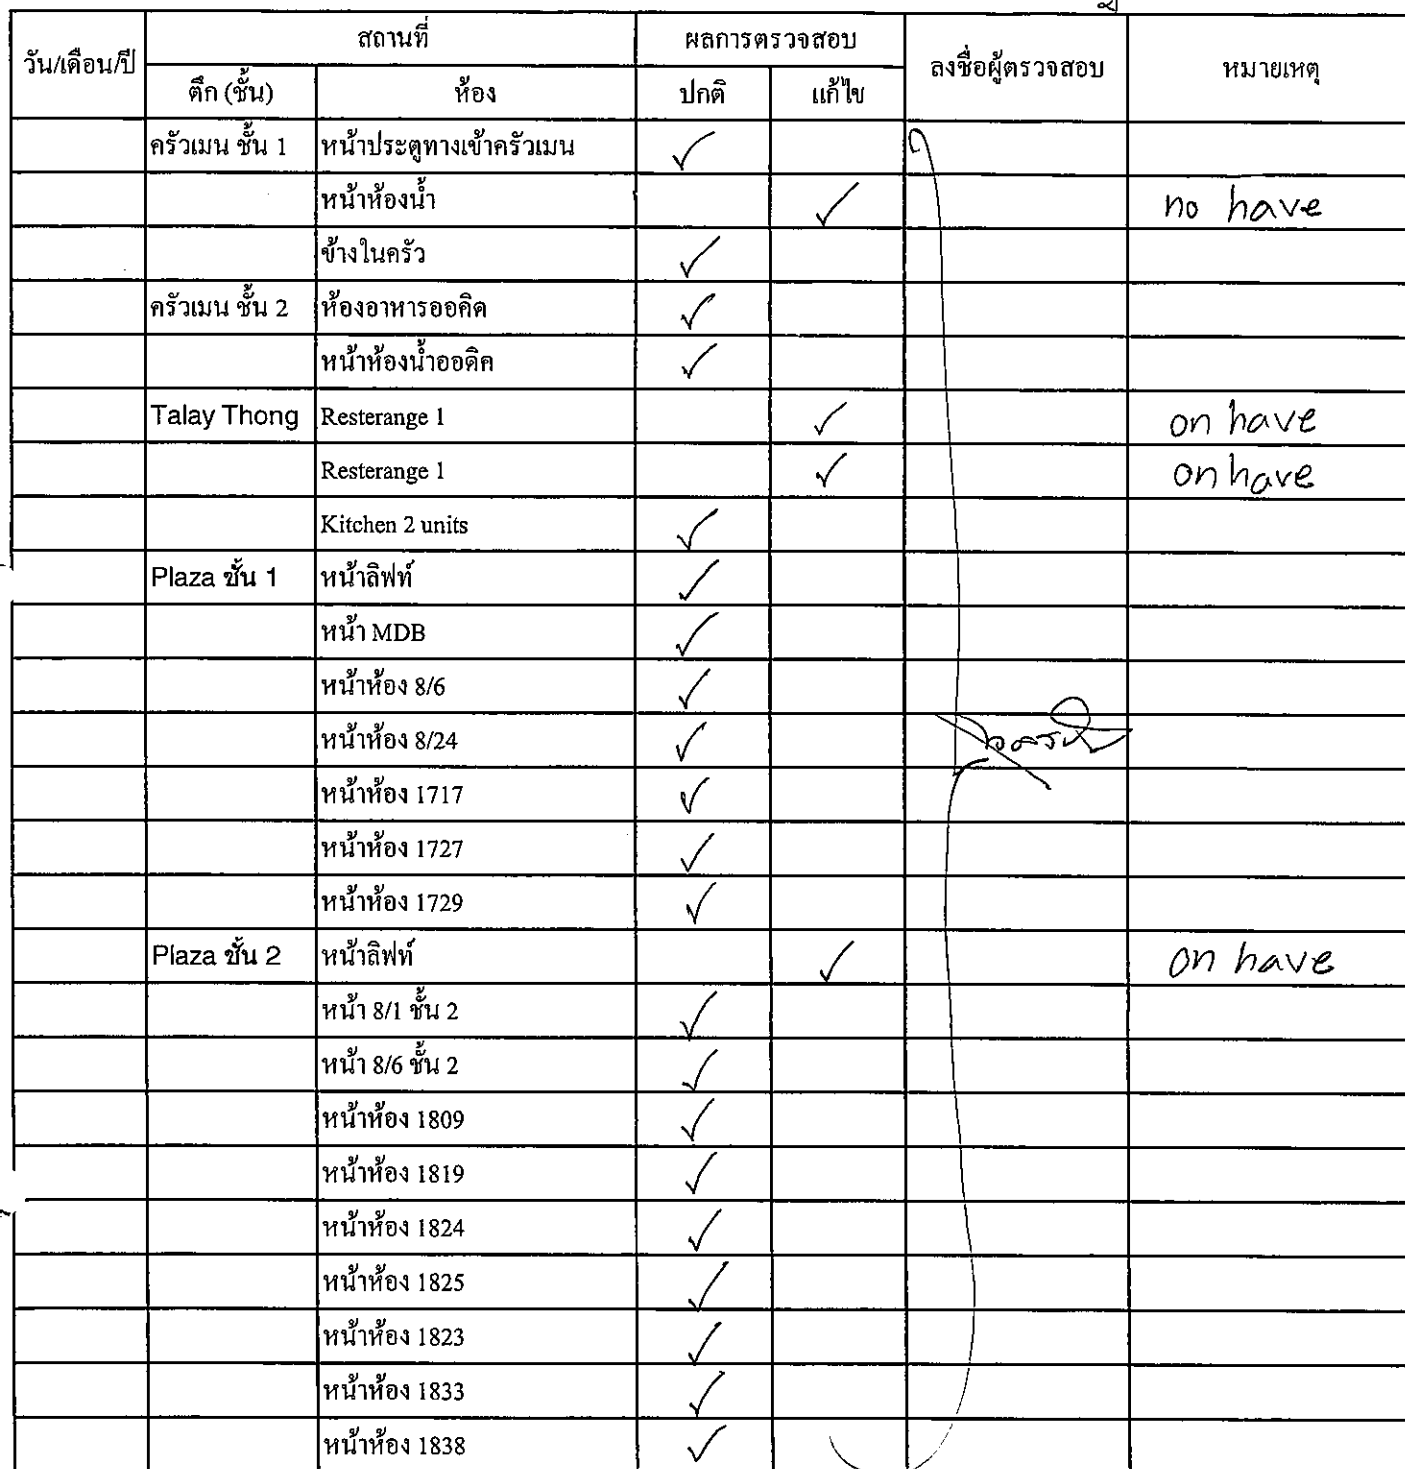 วัน/เดือน/ปี สถานที่ ผลการตรวจสอบ ลงชื่อผู้ตรวจสอบ หมายเหตุ
ตึก (ชั้น) ห้อง ปกติ แก้ไข
ครัวเมน ชั้น 1 หน้าประตูทางเข้าครัวเมน ✓
หน้าห้องน้ำ ✓ no have
ข้างในครัว ✓
ครัวเมน ชั้น 2 ห้องอาหารออคิด ✓
หน้าห้องน้ำออดิค ✓
Talay Thong Resterange 1 ✓ on have
Resterange 1 ✓ on have
Kitchen 2 units ✓
Plaza ชั้น 1 หน้าลิฟท์ ✓
หน้า MDB ✓
หน้าห้อง 8/6 ✓
หน้าห้อง 8/24 ✓
หน้าห้อง 1717 ✓
หน้าห้อง 1727 ✓
หน้าห้อง 1729 ✓
Plaza ชั้น 2 หน้าลิฟท์ ✓ on have
หน้า 8/1 ชั้น 2 ✓
หน้า 8/6 ชั้น 2 ✓
หน้าห้อง 1809 ✓
หน้าห้อง 1819 ✓
หน้าห้อง 1824 ✓
หน้าห้อง 1825 ✓
หน้าห้อง 1823 ✓
หน้าห้อง 1833 ✓
หน้าห้อง 1838 ✓